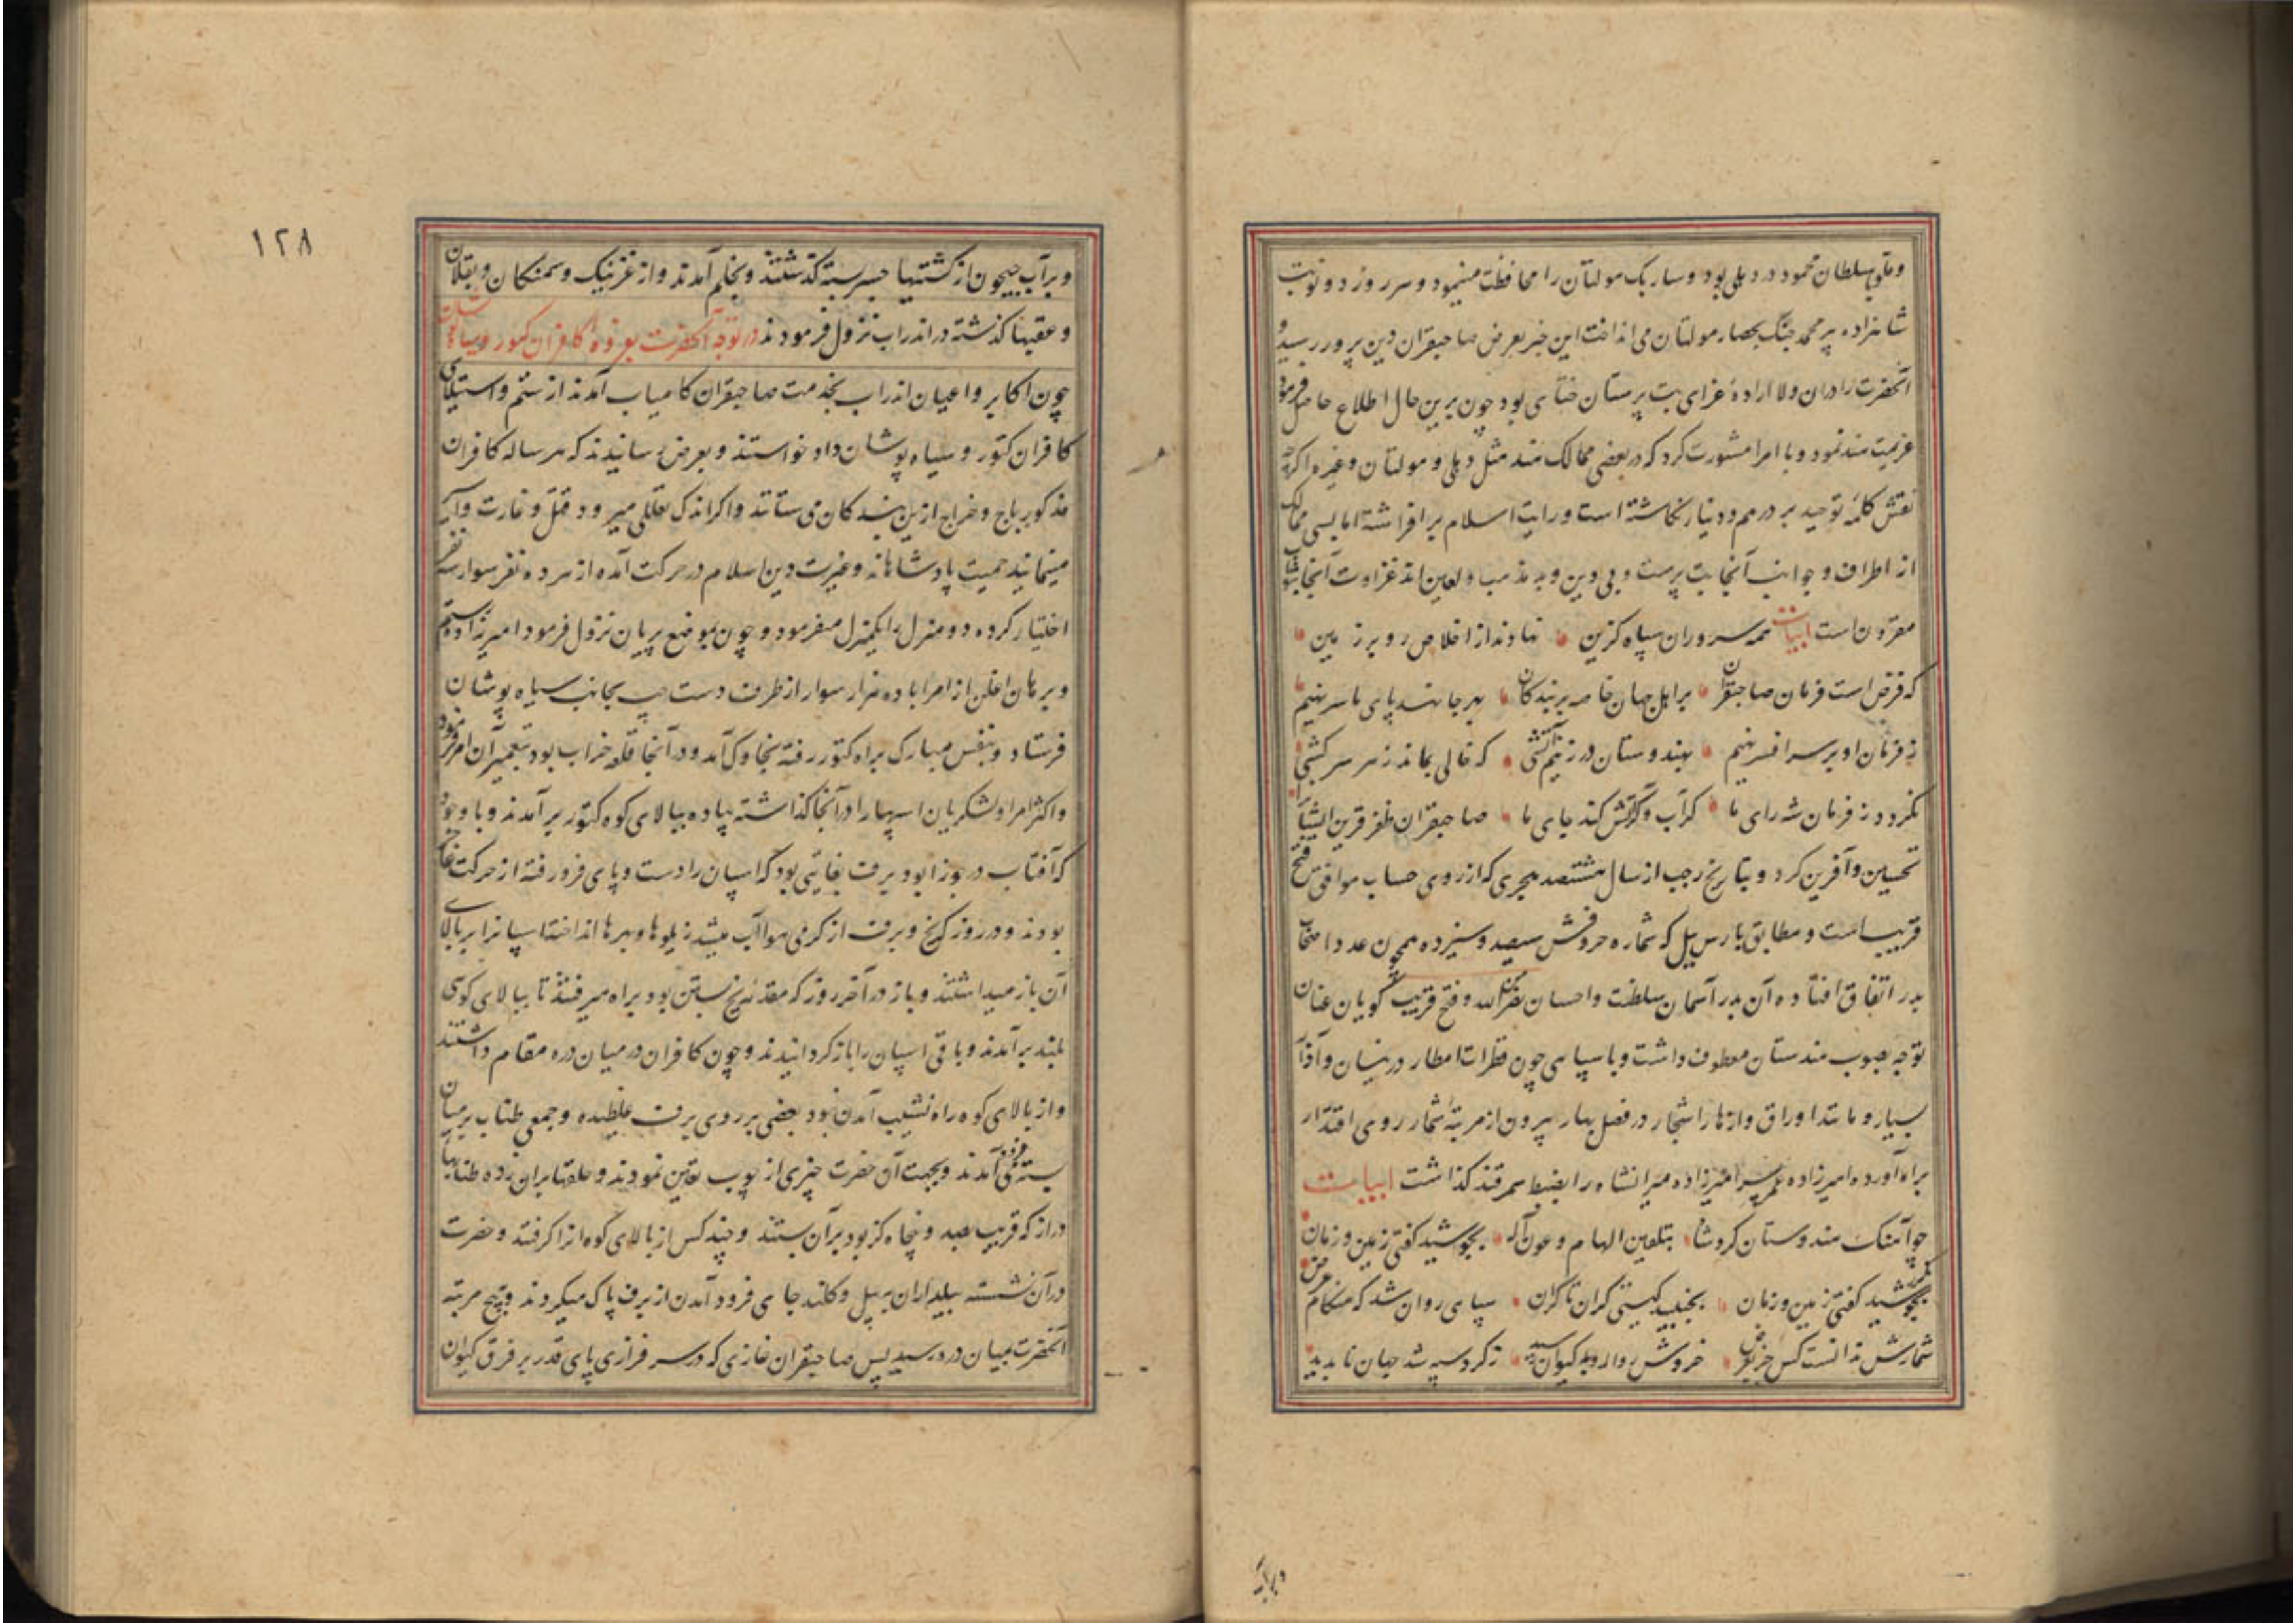 و ملو سلطان محمود در دهلی بود و سارنک مولتان را محافظت مینمود و هر روز دو نوبت
شاهزاده پیر محمد جنک بحصار مولتان می انداخت این خبر بعرض صاحبقران دین پرور رسید و
آنحضرت را دران ولا ارادهٔ غزای بت پرستان ختای بود چون برین حال اطلاع حاصل فرمود
عزیمت هند نمود و با امرا مشورت کرد که در بعضی ممالک هند مثل دهلی و مولتان و غیره اکرچه
نقش کلمهٔ توحید بر درهم و دینار نکاشته است و رایت اسلام بر افراشته اما بسی ممالک
از اطراف و جوانب آنجا بت پرست و بی دین و بد مذهب و لعین اند غزاوت آنجا بثواب
مقرون است ابیات همه سروران سپاه کزین نهاوند از اخلاص رو بر زمین
که فرض است فرمان صاحبقران بر اهل جهان خاصه بر بندکان بهر جا نهد پای ما سر نهیم
ز فرمان او بر سر افسر نهیم بهندوستان در زنیم آتشی که خالی بماند ز هر سرکشی
نکردد ز فرمان شه رای ما کر آب و کر آتش کند جای ما صاحبقران ظفر قرین ایشانرا
تحسین و آفرین کرد و بتاریخ رجب از سال هشتصد هجری که از روی حساب موافق فتح
قریب است و مطابق بارس ییل که شماره حروفش سیصد و سیزده همچون عدد اصحاب
بدر اتفاق افتاده آن بدر آسمان سلطنت و احسان نصر من الله و فتح قریب کویان عنان
توجه بصوب هندستان معطوف داشت و با سپاهی چون قطرات امطار در نیسان و آذار
بسیار و مانند اوراق و ازهار اشجار در فصل بهار بیرون از مرتبهٔ شمار روی اقتدار
براه آورده امیرزاده عمر پسر امیرزاده میرانشاه را بضبط سمرقند کذاشت ابیات
چو آهنک هندوستان کرد شاه بتلقین الهام و عون آله بجوشید کفتی زمین و زمان
بجوشید کفتی زمین و زمان بجنبید کیتی کران تا کران سپاهی روان شد که هنکام عرض
شمارش ندانست کس جز بفرض خروش روارو بکیوان رسید ز کرد سپه شد جهان ناپدید
و بر آب
۱۲۸
و بر آب جیحون از کشتیها جسر بسته کذشتند و بخلم آمدند و از غزنیک و سمنکان و بقلان
و عقبها کذشته در اندراب نزول فرمودند در توجه آنحضرت بغزوه کافران کتور و سیاه پوشان
چون اکابر و اعیان اندراب بخدمت صاحبقران کامیاب آمدند از ستم و استیلای
کافران کتور و سیاه پوشان داد خواستند و بعرض رسانیدند که هر ساله کافران
مذکور باج و خراج ازین بندکان می ستانند و اکر اندک تعللی میرود قتل و غارت و اسر
مینمایند حمیت پادشاهانه و غیرت دین اسلام در حرکت آمده از هر ده نفر سوار سه نفر
اختیار کرده دو منزل را یکمنزل میفرمود و چون بموضع پریان نزول فرمود امیرزاده رستم
و برهان اغلن از امرا با ده هزار سوار از طرف دست چپ بجانب سیاه پوشان
فرستاد و بنفس مبارک براه کتور رفته بخاوک آمد و در آنجا قلعه خراب بود بتعمیر آن امر فرمود
و اکثر امرا و لشکریان اسپها را در آنجا کذاشته پیاده ببالای کوه کتور بر آمدند و با وجود
که آفتاب در جوزا بود برف بغایتی بود که اسپان را دست و پای فرو رفته از حرکت عاجز
بودند و در روز که یخ و برف از کرمی هوا آب میشد زیلوها و بهرها انداخته اسپانرا بر بالای
آن باز میداشتند و باز در آخر روز که مقدمهٔ یخ بستن بود براه میرفتند تا ببالای کوهی
بلند بر آمدند و باقی اسپان را باز کردانیدند و چون کافران در میان دره مقام داشتند
و از بالای کوه راه نشیب آمدن نبود بعضی بر روی برف غلطیده و جمعی طناب بر میان
بسته فرود می آمدند و بجهت آن حضرت چیزی از چوب تعیین نمودند و حلقها بران زده طنابها
دراز که قریب صد و پنجاه کز بود بر آن بستند و چند کس از بالای کوه انرا کرفتند و حضرت
در آن نشسته بیلداران به بیل و کلند جای فرود آمدن از برف پاک میکردند و پنج مرتبه
آنحضرت بمیان دره رسید پس صاحبقران غازی که در سر فرازی پای قدر بر فرق کیوان